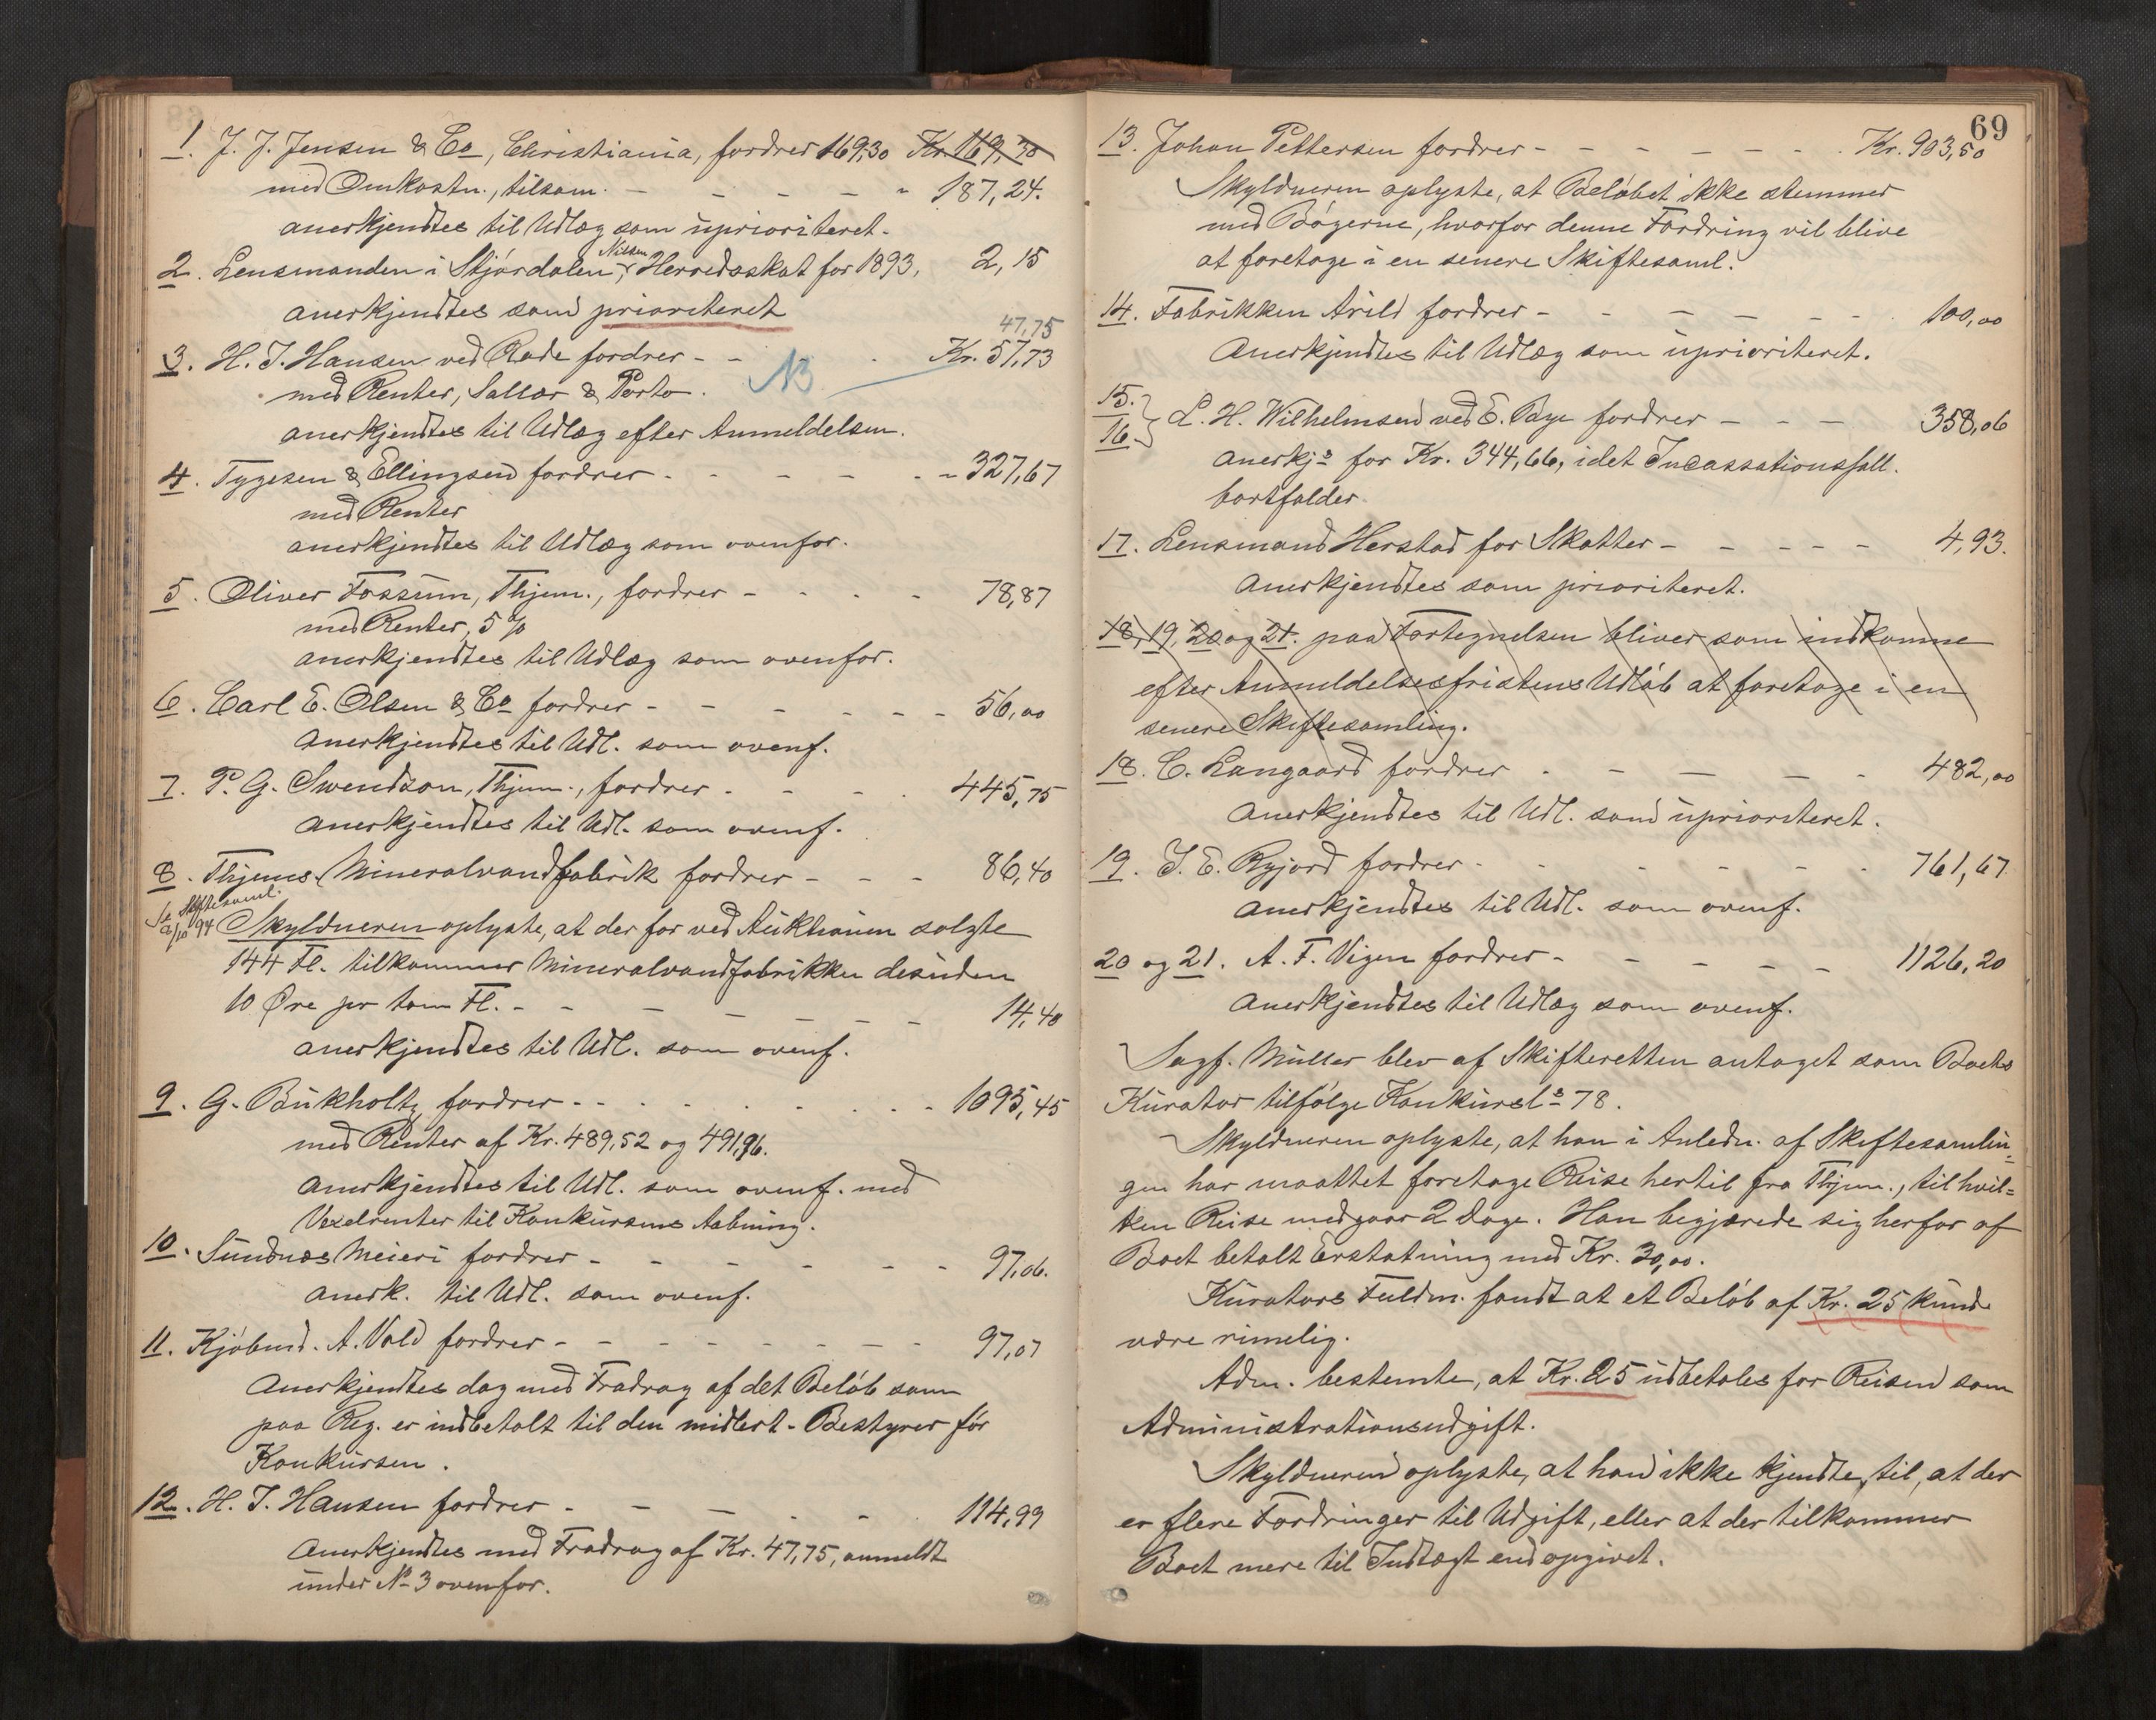 1. J. J. Jensen & Co, Christiania, fordrer 169,30 Kr. 169,30
med Omkostn., tilsam. - - - - - 187,24.
anerkjendtes til Udlæg som uprioriteret.
2. Lensmanden i Stjørdalen, Nilsen, Herredsskat for 1893, 2,15
anerkjendtes som prioriteret
47,75
3. H. J. Hansen ved Rode fordrer - - - Kr. 57,73
NB
med Renter, Sallær & Porto.
anerkjendtes til Udlæg efter Anmeldelsen.
4. Tygesen & Ellingsen fordrer - - - - - 327,67
med Renter
anerkjendtes til Udlæg som ovenfor.
5. Oliver Fossum, Thjem., fordrer - - - - 78,87
med Renter, 5 %
anerkjendtes til Udlæg som ovenfor.
6. Carl E. Olsen & Co fordrer - - - - - - 56,00
Anerkjendtes til Udl. som ovenf.
7. P. G. Swendson, Thjem., fordrer - - - - 445,75
Anerkjendtes til Udl. som ovenf.
8. Thjems. Mineralvandfabrik fordrer - - - 86,40
Se Skiftesaml.
2/10 94 Skyldneren oplyste, at der for ved Auktionen solgte
144 Fl. tilkommer Mineralvandfabrikken desuden
10 Øre pr tom Fl. - - - - - - - 14,40
anerkjendtes til Udl. som ovenf.
9. G. Bukholtz fordrer - - - - - - - - 1095,45
med Renter af Kr. 489,52 og 491,96.
Anerkjendtes til Udl. som ovenf. med
Vexelrenter til Konkursens Aabning.
10. Sundnæs Meieri fordrer - - - - - - - 97,06.
Anerk. til Udl. som ovenf.
11. Kjøbmd. A. Vold fordrer - - - - - - - - 97,07
Anerkjendtes dog med Fradrag af det Beløb som
paa Reg. er indbetalt til den midlert. Bestyrer før
Konkursen.
12. H. J. Hansen fordrer - - - - - - 114,99
Anerkjendtes med Fradrag af Kr. 47,75, anmeldt
under No 3 ovenfor.
69
13. Johan Pettersen fordrer - - - - - - - Kr. 903,50
Skyldneren oplyste, at Beløbet ikke stemmer
med Bøgerne, hvorfor denne Fordring vil blive
at foretage i en senere Skiftesaml.
14. Fabrikken Arild fordrer - - - - - - - 100,00
Anerkjendtes til Udlæg som uprioriteret.
15.
16. } L. H. Wilhelmsen ved E. Bye fordrer - - - 358,06
Anerkjs for Kr. 344,66, idet Incassationssall.
bortfalder.
17. Lensmand Herstad for Skatter - - - - - 4,93.
Anerkjendtes som prioriteret.
18, 19, 20 og 21. paa Fortegnelsen bliver som indkomne
efter Anmeldelsesfristens Udløb at foretage i en
senere Skiftesamling.
18. C. Langaard fordrer - - - - - 482,00
Anerkjendtes til Udl. som uprioriteret.
19. J. E. Ryjord fordrer - - - - - - - 761,67
Anerkjendtes til Udl. som ovenf.
20 og 21. A. F. Vigen fordrer - - - - - 1126,20
Anerkjendtes til Udlæg som ovenf.
Sagf. Müller blev af Skifteretten antaget som Boets
Kurator tilfølge Konkursls 78.
Skyldneren oplyste, at han i Anledn. af Skiftesamlin-
gen har maattet foretage Reise hertil fra Thjem., til hvil-
ken Reise medgaar 2 Dage. Han begjærede sig herfor af
Boet betalt Erstatning med Kr. 30,00.
Kurators Fuldm. fandt at et Beløb af Kr. 25 kunde
være rimelig.
Adm. bestemte, at Kr. 25 udbetales for Reisen som
Administrationsudgift.
Skyldneren oplyste, at han ikke kjendte til, at der
er flere Fordringer til Udgift, eller at der tilkommer
Boet mere til Indtægt end opgivet.